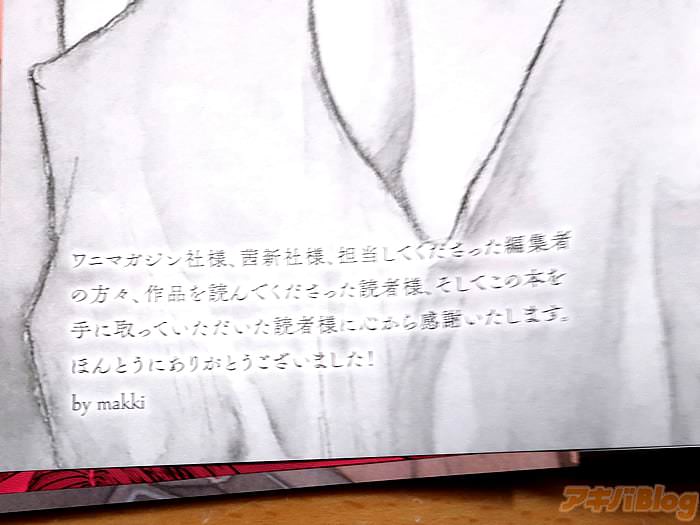 ワニマガジン社様、茜新社様、担当してくださった編集者
の方々、作品を読んでくださった読者様、そしてこの本を
手に取っていただいた読者様に心から感謝いたします。
ほんとうにありがとうございました！
by makki
アキバBlog